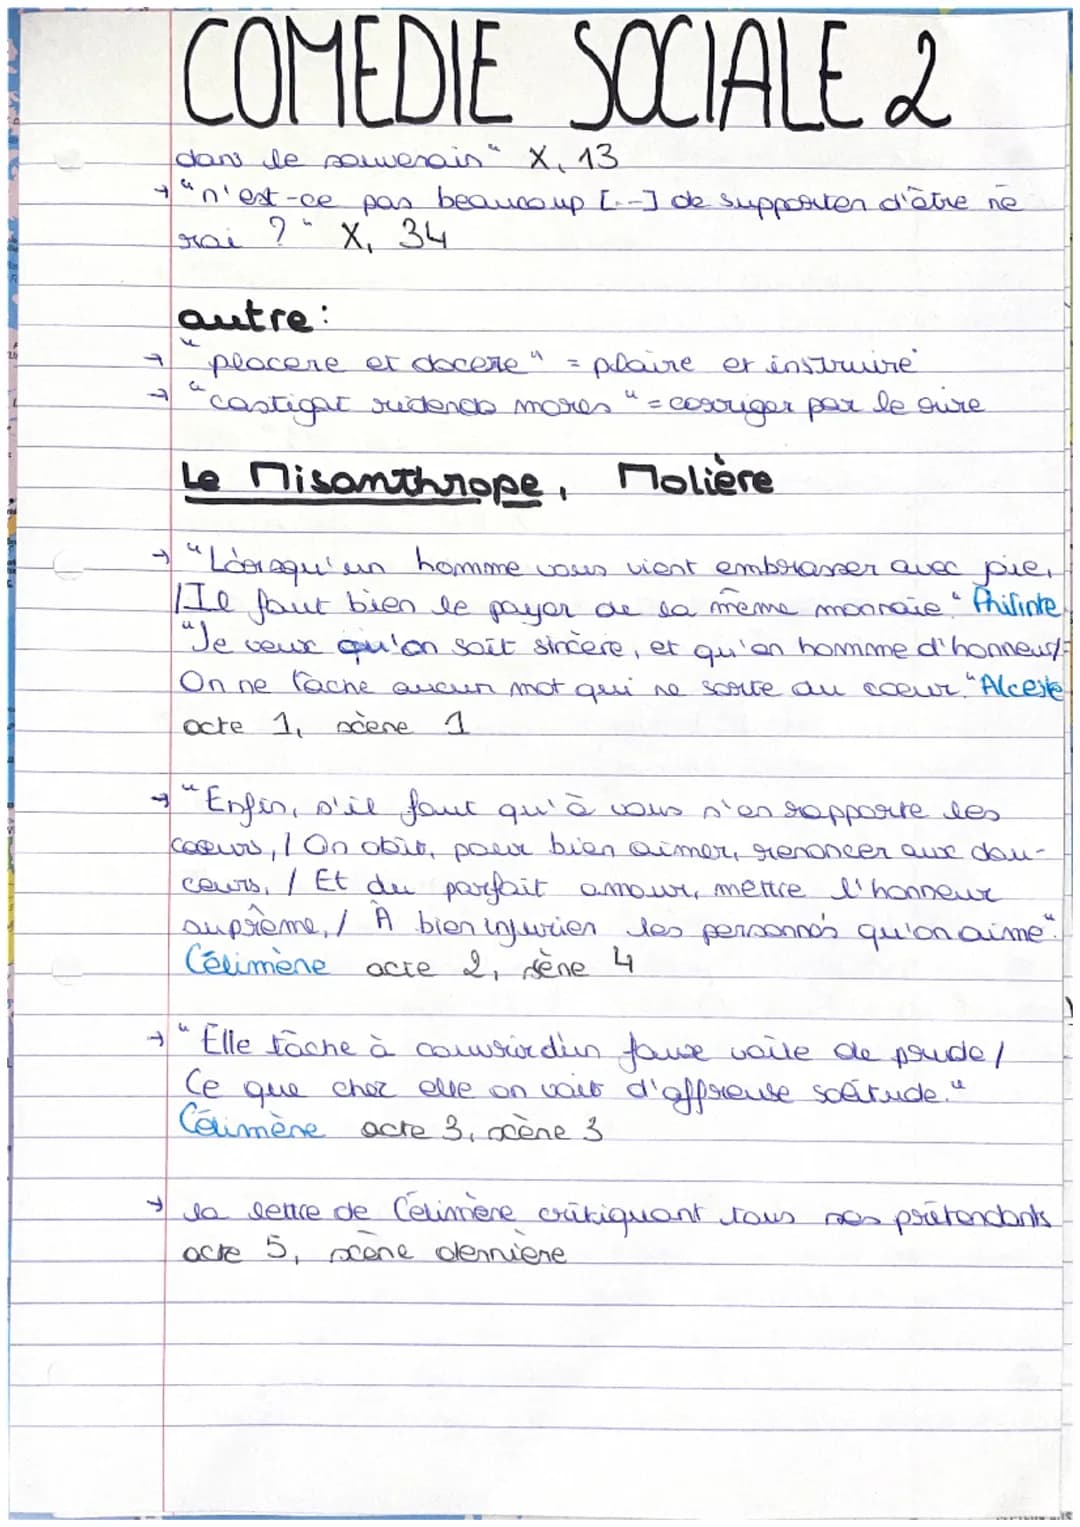 COMEDIE SOCIALE 2
dans le souverain" X, 13
→ "n'est-ce pas beaucoup [...] de supporter d'être né
roi ?" X, 34
autre:
→ "placere et docere" = plaire et instruire
→ "castigat ridendo mores" = corriger par le rire
Le Misanthrope, Molière
→ "Lorsqu'un homme vous vient embrasser avec joie,
/ Il faut bien le payer de la même monnaie." Philinte
"Je veux qu'on soit sincère, et qu'en homme d'honneur/
On ne lâche aucun mot qui ne sorte du coeur." Alceste
acte 1, scène 1
→ "Enfin, s'il faut qu'à vous s'en rapporte les
coeurs, / On doit, pour bien aimer, renoncer aux dou-
ceurs, / Et du parfait amour, mettre l'honneur
suprême, / À bien injurier les personnes qu'on aime".
Célimène acte 2, scène 4
→ "Elle tâche à couvrir d'un faux voile de prude /
Ce que chez elle on voit d'affreuse solitude."
Célimène acte 3, scène 3
→ la lettre de Célimène critiquant tous ses prétendants
acte 5, scène dernière